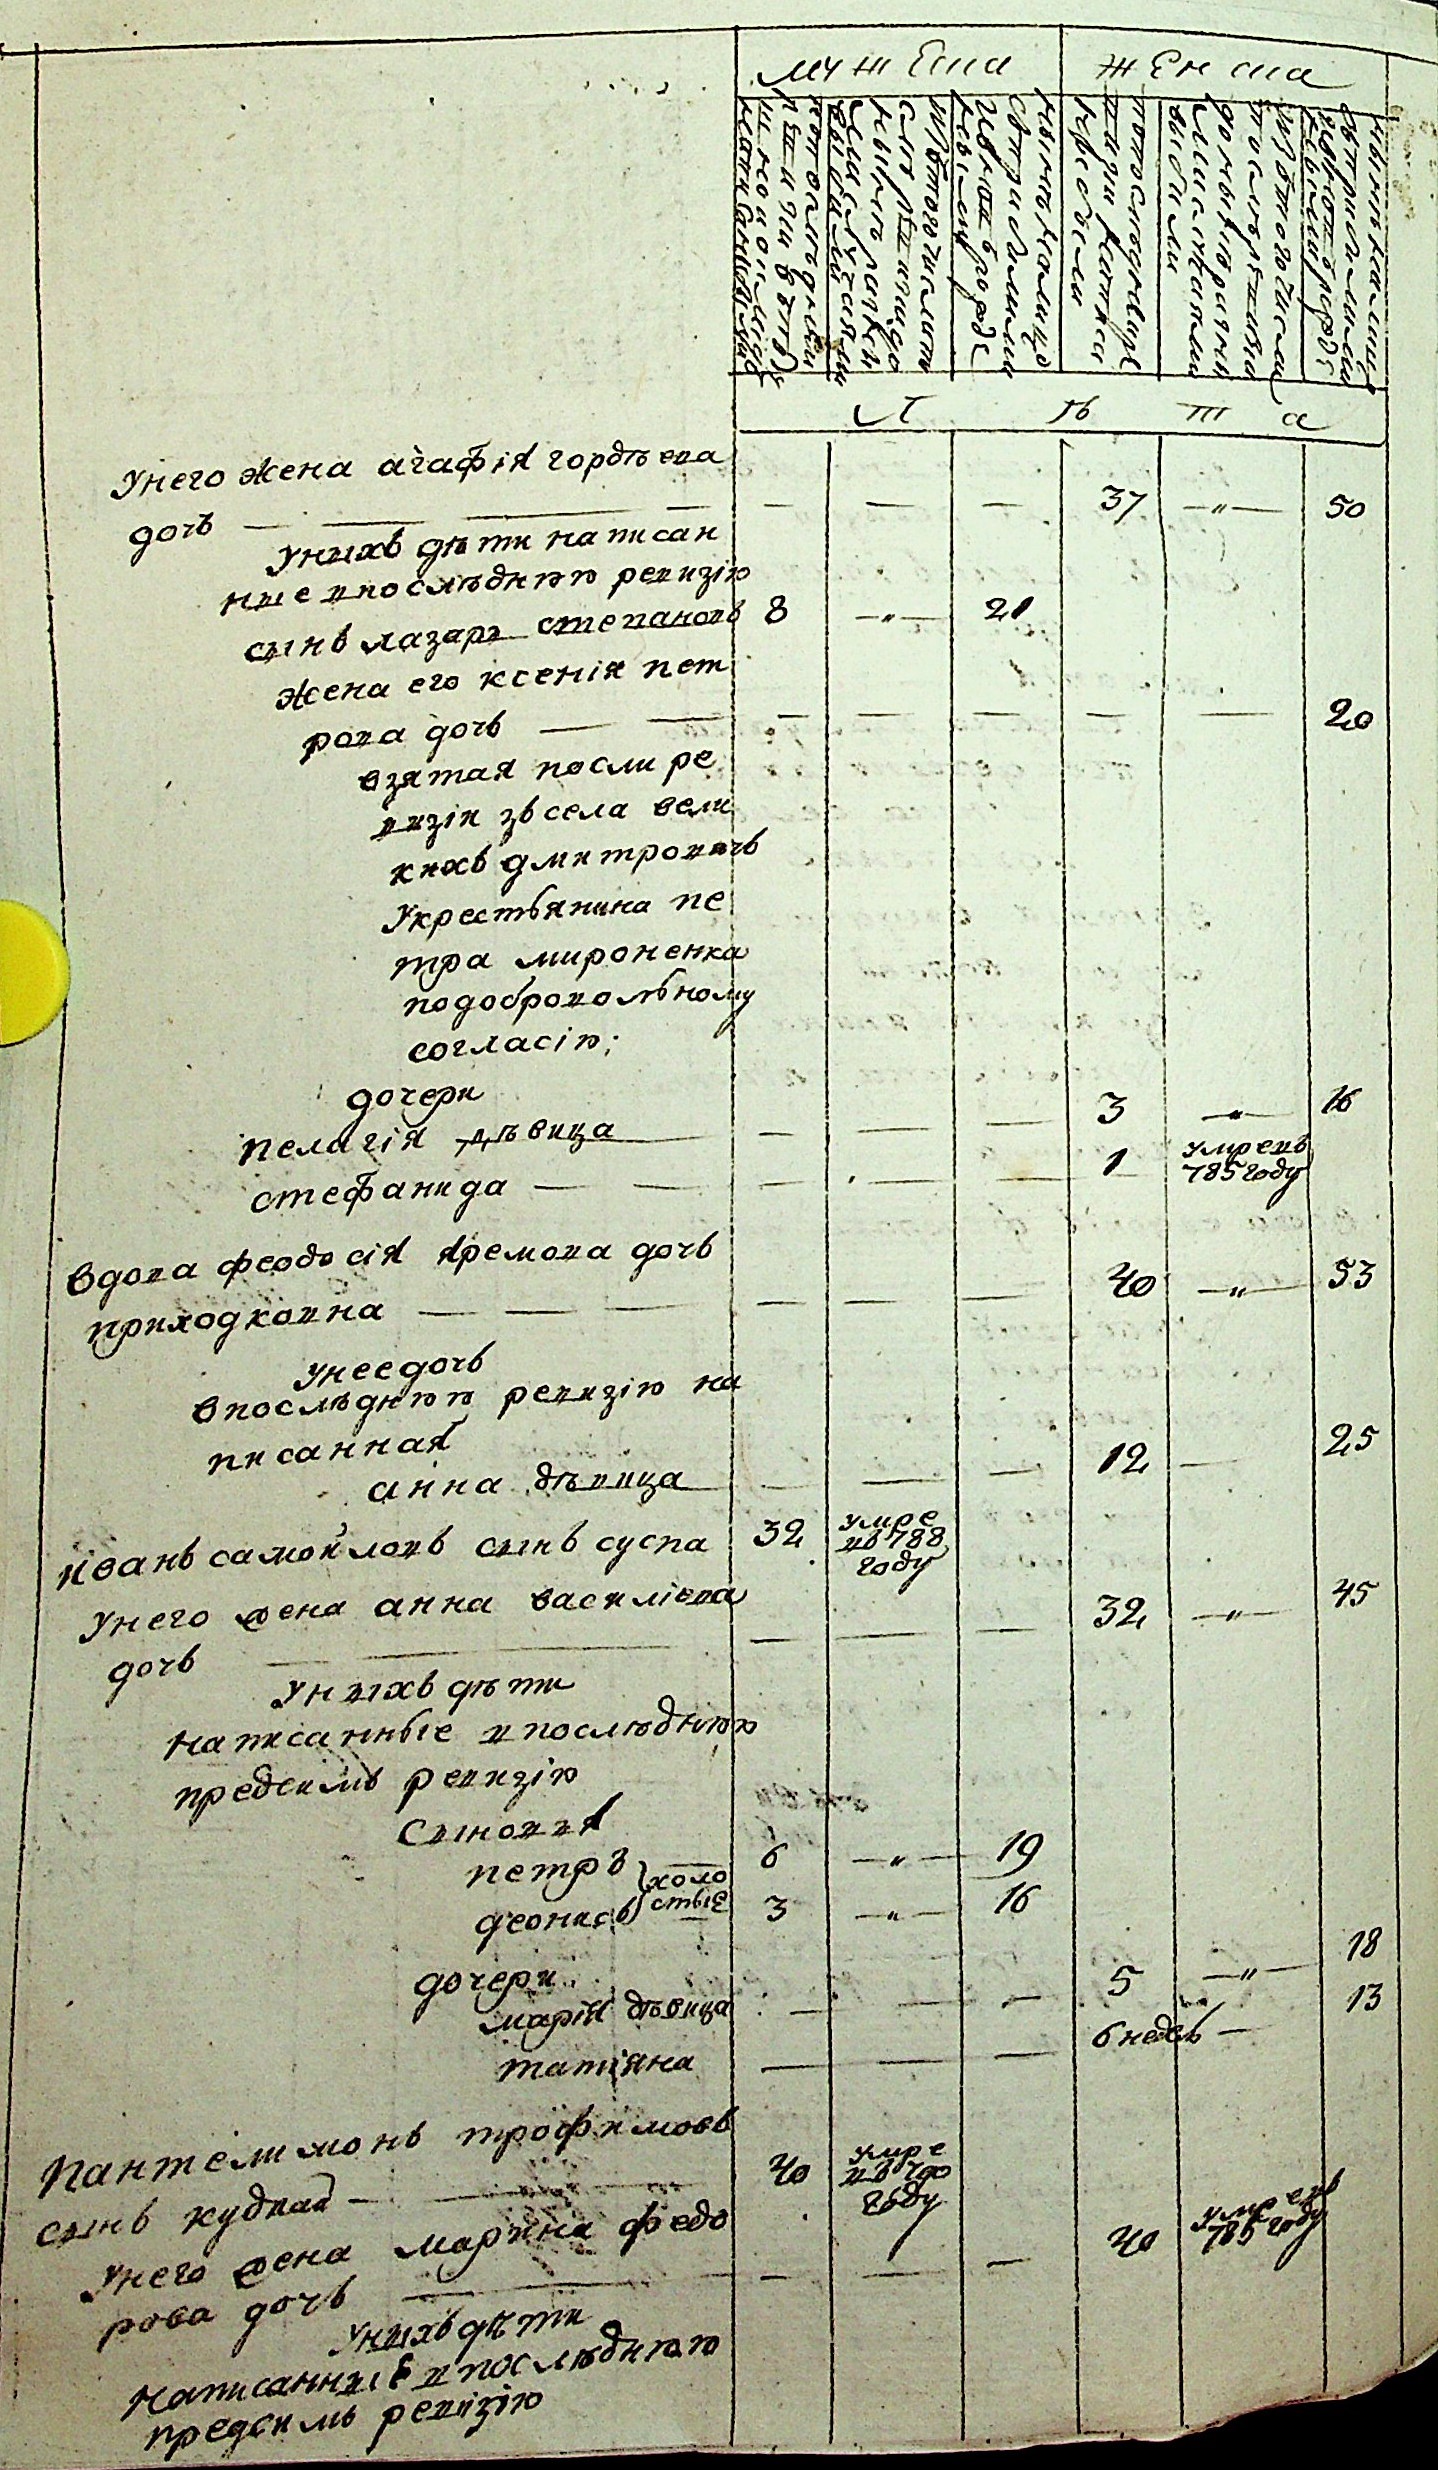 мужеска женска
Л ѣ т а
У него жена агафія гордѣева
дочь — — — — — — — 37 —„— 50
У нихъ дѣти написан
ные в последнюю ревизію
сынъ лазарь степановъ 8 —„— 21
жена его ксенія пет
рова дочь — — — — — — — 20
взятая посли ре
визіи зъ села вели
кихъ дмитровичь
У крестьянина пе
тра мироненка
по добровольному
согласію;
дочери
пелагія дѣвица — — — 3 —„— 16
стефанида — — — — — 1 умре въ 785 году
Вдова феодосія яремова дочь
приходковна — — — — — — 40 —„— 53
У нее дочь
в последнюю ревизію на
писанная
анна дѣвица — — — 12 — 25
иванъ самойловъ сынъ суспа 32 умре
въ 788
году
У него жена анна василіева
дочь — — — — — 32 —„— 45
У нихъ дѣти
написанные в последнюю
предсимъ ревизію
Сыновья
петръ холо 6 —„— 19
деонисъ стые 3 —„— 16
дочери
марія дѣвица — — — 5 —„— 18
татіяна — — — 6 недель — 13
Пантелимонъ трофимовъ
сынъ кудвай — — 40 умре
въ 790
году
У него жена марина федо
рова дочь — — — — — 40 умре въ
785 году
У нихъ дѣти
написанные в последнюю
предсимъ ревизію